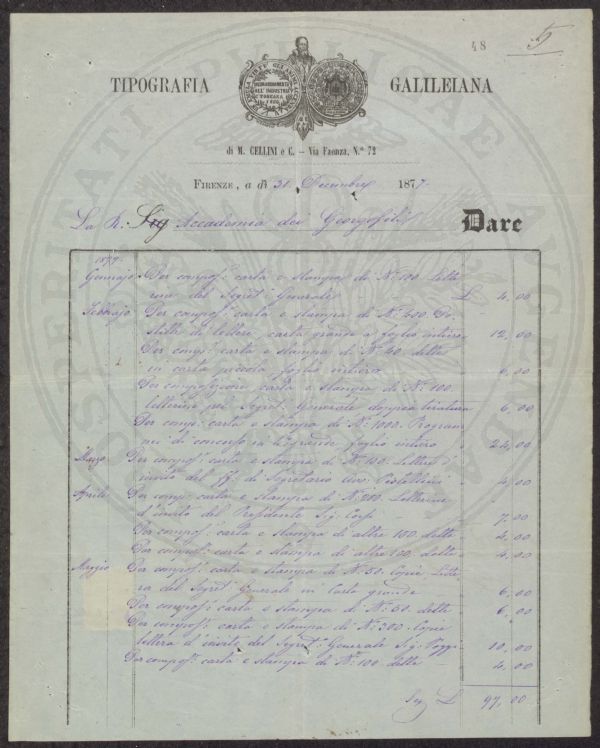 48
TIPOGRAFIA GALILEIANA
di M. CELLINI e C. – Via Faenza, N.º 72
FIRENZE, a dì 31. Decembre 1877.
La R: Sig Accademia dei Georgofili Dare
1877.
Gennajo Per composº carta e stampa di Nº 100. Lette
rine del Segretº Generale L 4,00
Febbrajo Per composº carta e stampa di Nº 400.
di lettere carta grande a foglio intiero 12,00
Per compº carta e stampa di Nº 40 dette
in carta piccola foglio intiero 6,00
Per composizione carta e stampa di Nº 100.
letterine pel Segretº Generale doppia tiratura 6,00
Per compº carta e stampa di Nº 1000. Program
mi di concorso in grande foglio intiero 24,00
Marzo Per composº carta e stampa di Nº 100. Lettere d'
invito del ff. di Segretario 4,00
Aprile Per compº carta e stampa di Nº 200. Letterine
d'invito del Presidente Sig. Corsi 7,00
Per composº carta e stampa di altre 100. dette 4,00
Per composº carta e stampa di altre 100. dette 4,00
Maggio Per composº carta e stampa di Nº 50. Copie Lette
ra del Segretº Generale in Carta grande 6,00
Per composº carta e stampa di Nº 50. dette 6,00
Per composº carta e stampa di Nº 300. Copie
lettera d'invito del Segretº Generale Sig. 10,00
Per composº carta e stampa di Nº 100 dette 4,00
Seg L 97,00